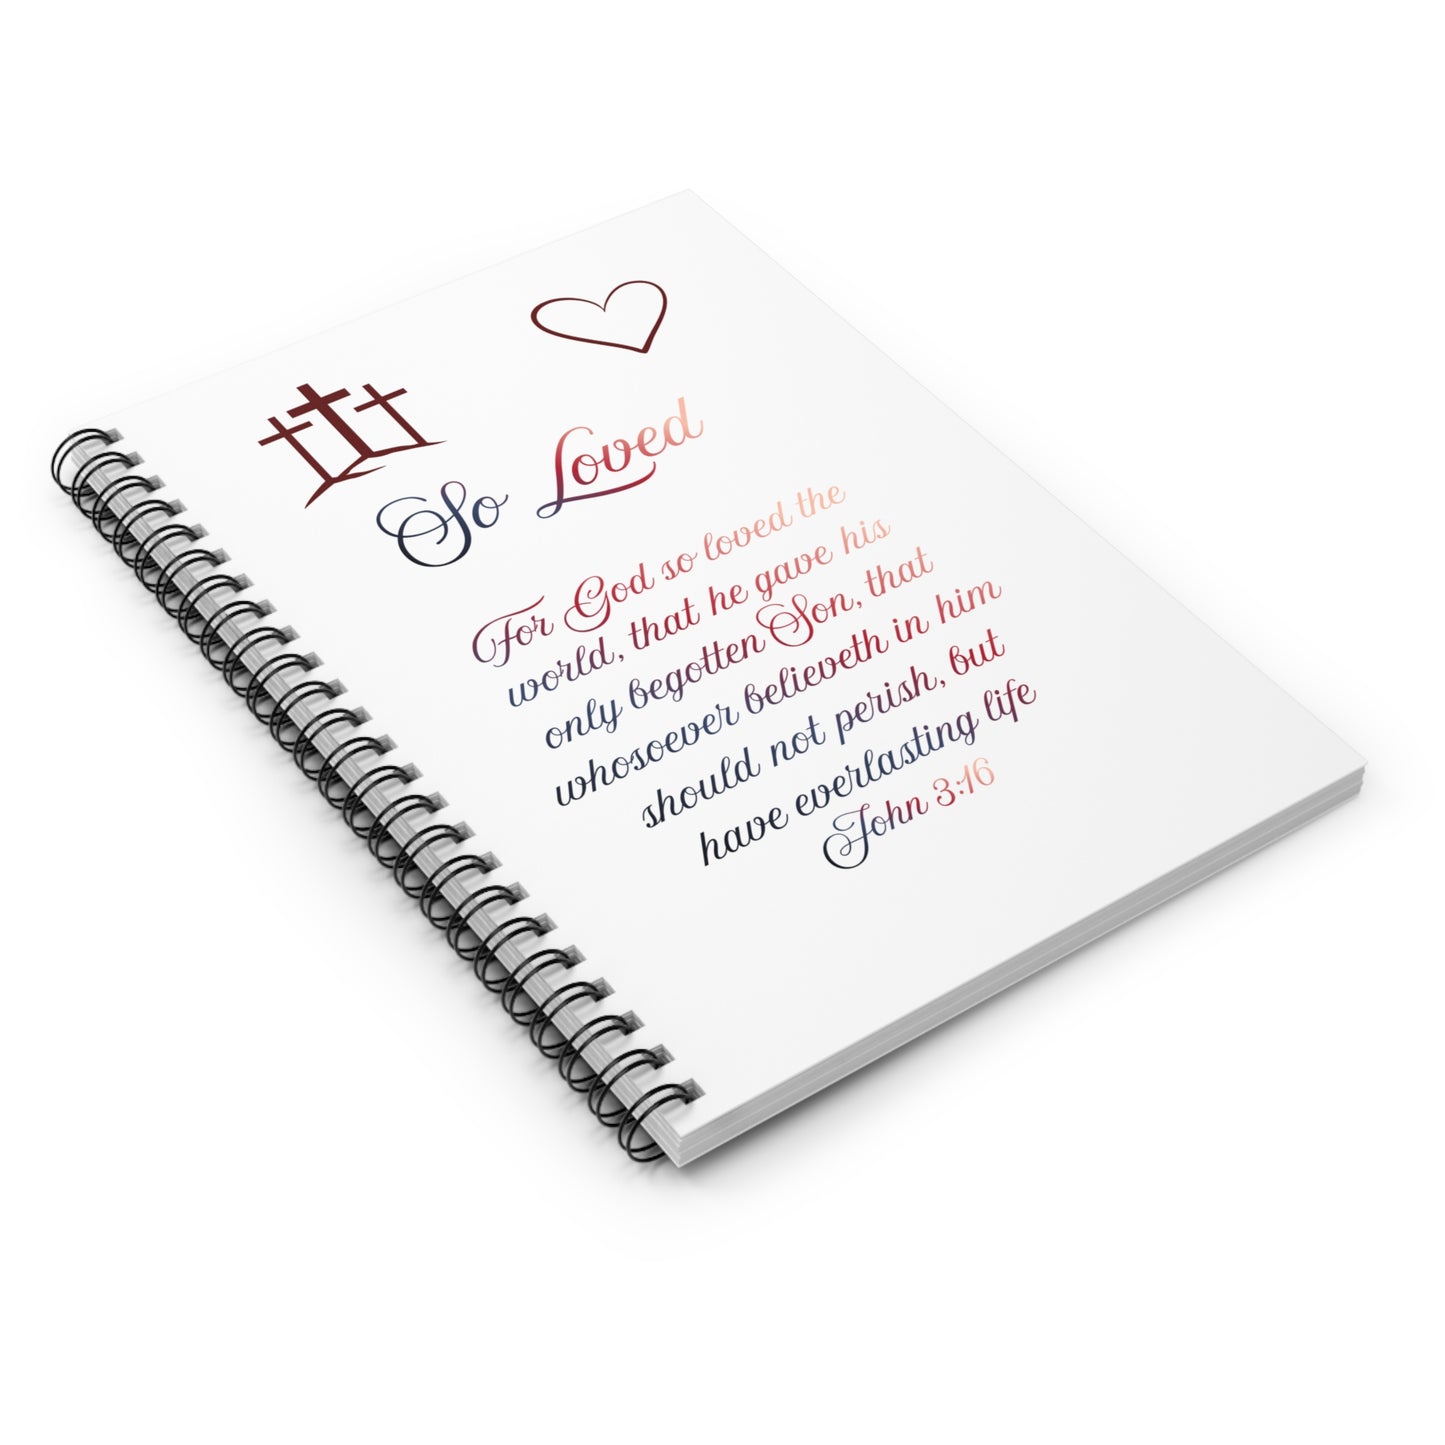 So Loved
For God so loved the
world, that he gave his
only begotten Son, that
whosoever believeth in him
should not perish, but
have everlasting life
John 3:16